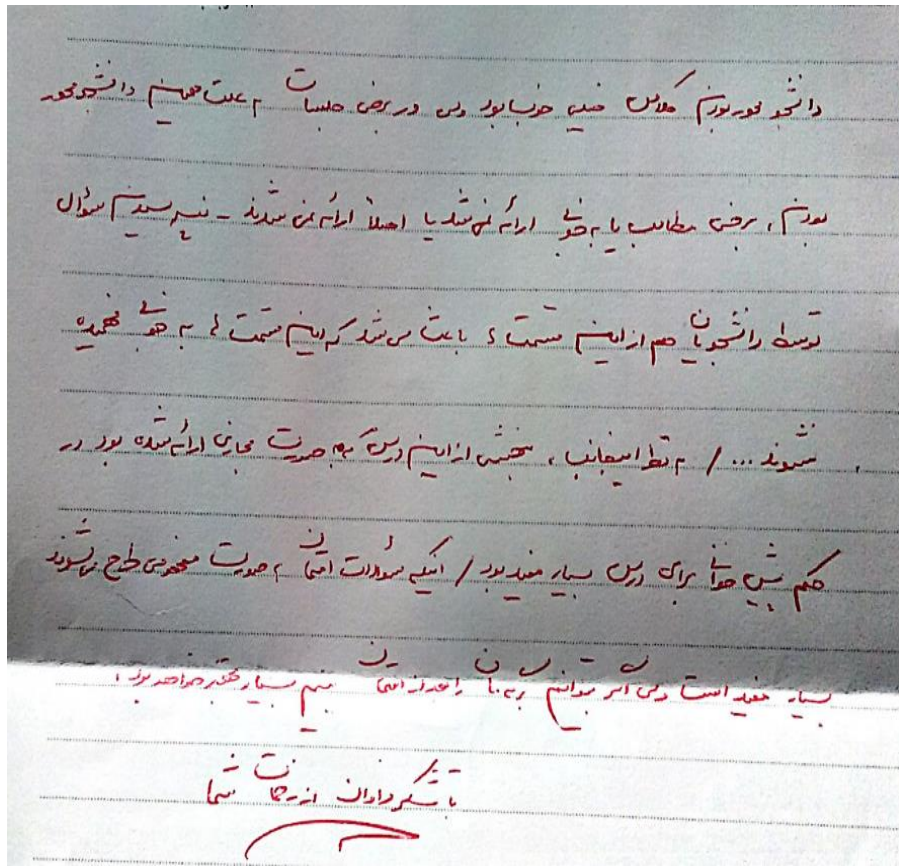 دانشجو محور بودن کلاس خیلی خوب بود ولی در برخی جلسات به علت همین دانشجو محور
بودن، برخی مطالب یا به خوبی ارائه نمی‌شد یا اصلاً ارائه نمی‌شدند - نپرسیدن سؤال
توسط دانشجویان هم از این قسمت‌ها باعث می‌شد که این قسمت‌ها به خوبی فهمیده
نشوند ... / به نظر اینجانب، بخشی از این درس که به صورت مجازی ارائه شده بود در
حکم پیش خوانی برای درس بسیار مفید بود / اینکه سؤالات امتحان به صورت مفهومی طرح می‌شوند
بسیار مفید است ولی اگر بتوانیم را بعد از امتحان ببینیم بسیار بهتر خواهد بود.
با تشکر فراوان از زحمات شما